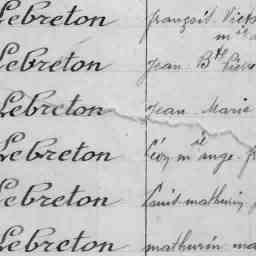 Lebreton françois Vict
m ie a
Lebreton Jean Bte Pierre
Lebreton Jean Marie
Lebreton Léon m ie ange f
Lebreton Louis mathurin
Lebreton mathurin ma